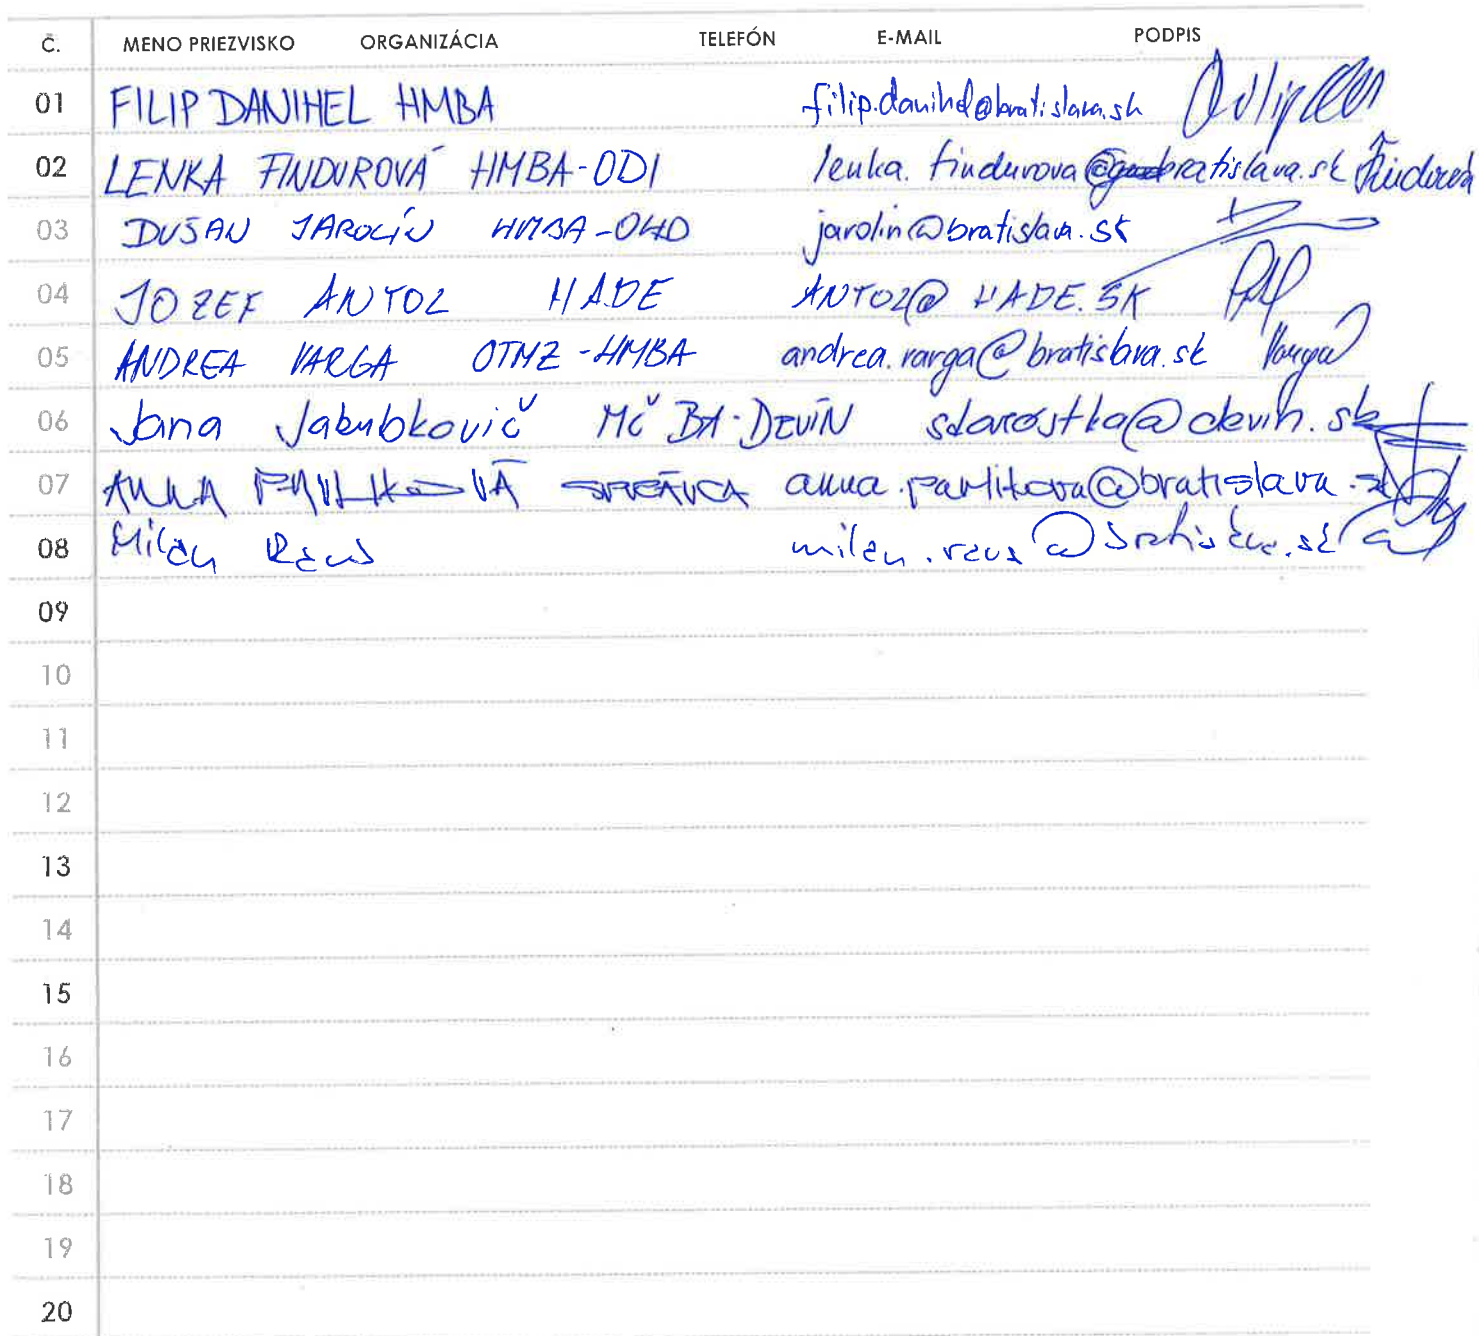 Č. MENO PRIEZVISKO ORGANIZÁCIA TELEFÓN E-MAIL PODPIS
01 FILIP DANIHEL HMBA filip.danihel@bratislava.sk
02 LENKA FINDUROVÁ HMBA-ODI lenka.findurova@bratislava.sk Findurová
03 DUŠAN JAROLÍN HMBA- jarolin@bratislava.sk
04 JOZEF ANTOL HADE ANTOL@HADE.SK
05 ANDREA VARGA OTMZ-HMBA andrea.varga@bratislava.sk Varga
06 Jana Jakubkovič MČ BA-DEVÍN starostka@devin.sk
07 ANNA PAVLIKOVÁ SPRÁVCA anna.pavlikova@bratislava.sk
08 Milan milan.@bratislava.sk
09
10
11
12
13
14
15
16
17
18
19
20